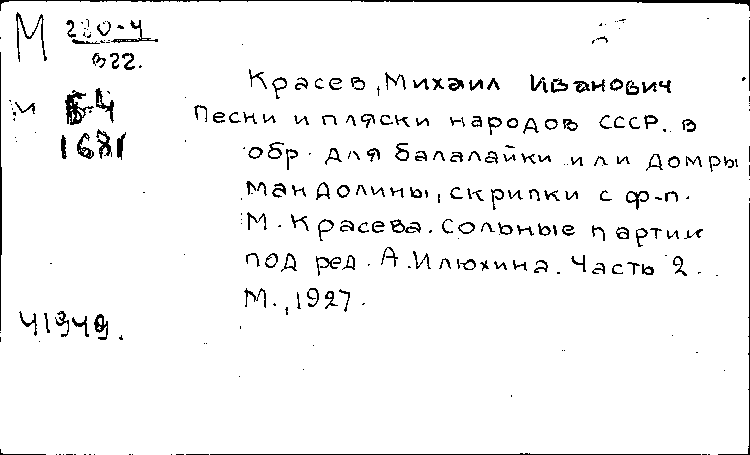 М 280-4
в22.
Красев, Михаил Иванович
м Б-4
Песни и пляски народов СССР. в
1681
обр. для балалайки или домры
мандолины, скрипки с ф-п.
М. Красева. Сольные партии
под ред. А. Илюхина. Часть 2.
М., 1927.
41949.